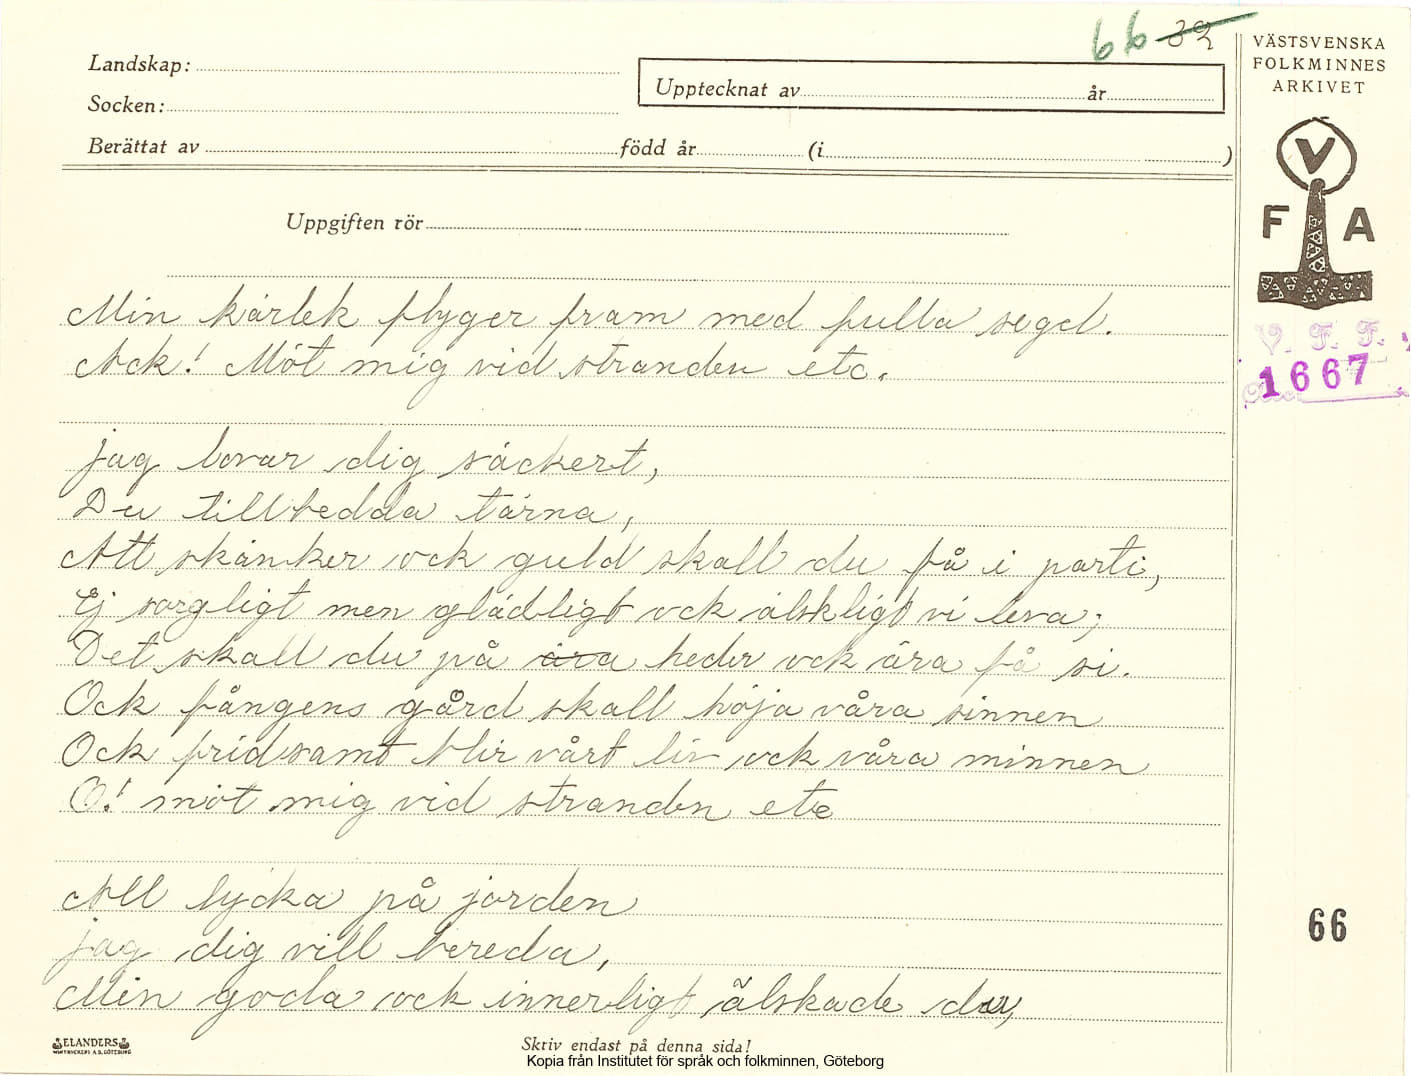 66 32
VÄSTSVENSKA
FOLKMINNES
ARKIVET
Landskap:
Socken:
Upptecknat av år
Berättat av född år (i )
Uppgiften rör
V
F A
V. F. F.
1667
Min kärlek flyger fram med fulla segel.
Ack! Möt mig vid stranden etc.
jag lovar dig säckert,
Du tillbedda tärna,
Att skänker ock guld skall du få i parti,
Ej sorgligt men glädligt ock älskligt vi leva;
Det skall du på ära heder ock ära få si.
Ock fångens gård skall höja våra sinnen
Ock fridsamt blir vårt liv ock våra minnen
O! möt mig vid stranden etc
All lycka på jorden
jag dig vill bereda,
Min goda ock innerligt älskade du,
66
ELANDERS
BOKTRYCKERI A.B. GÖTEBORG
Skriv endast på denna sida!
Kopia från Institutet för språk och folkminnen, Göteborg